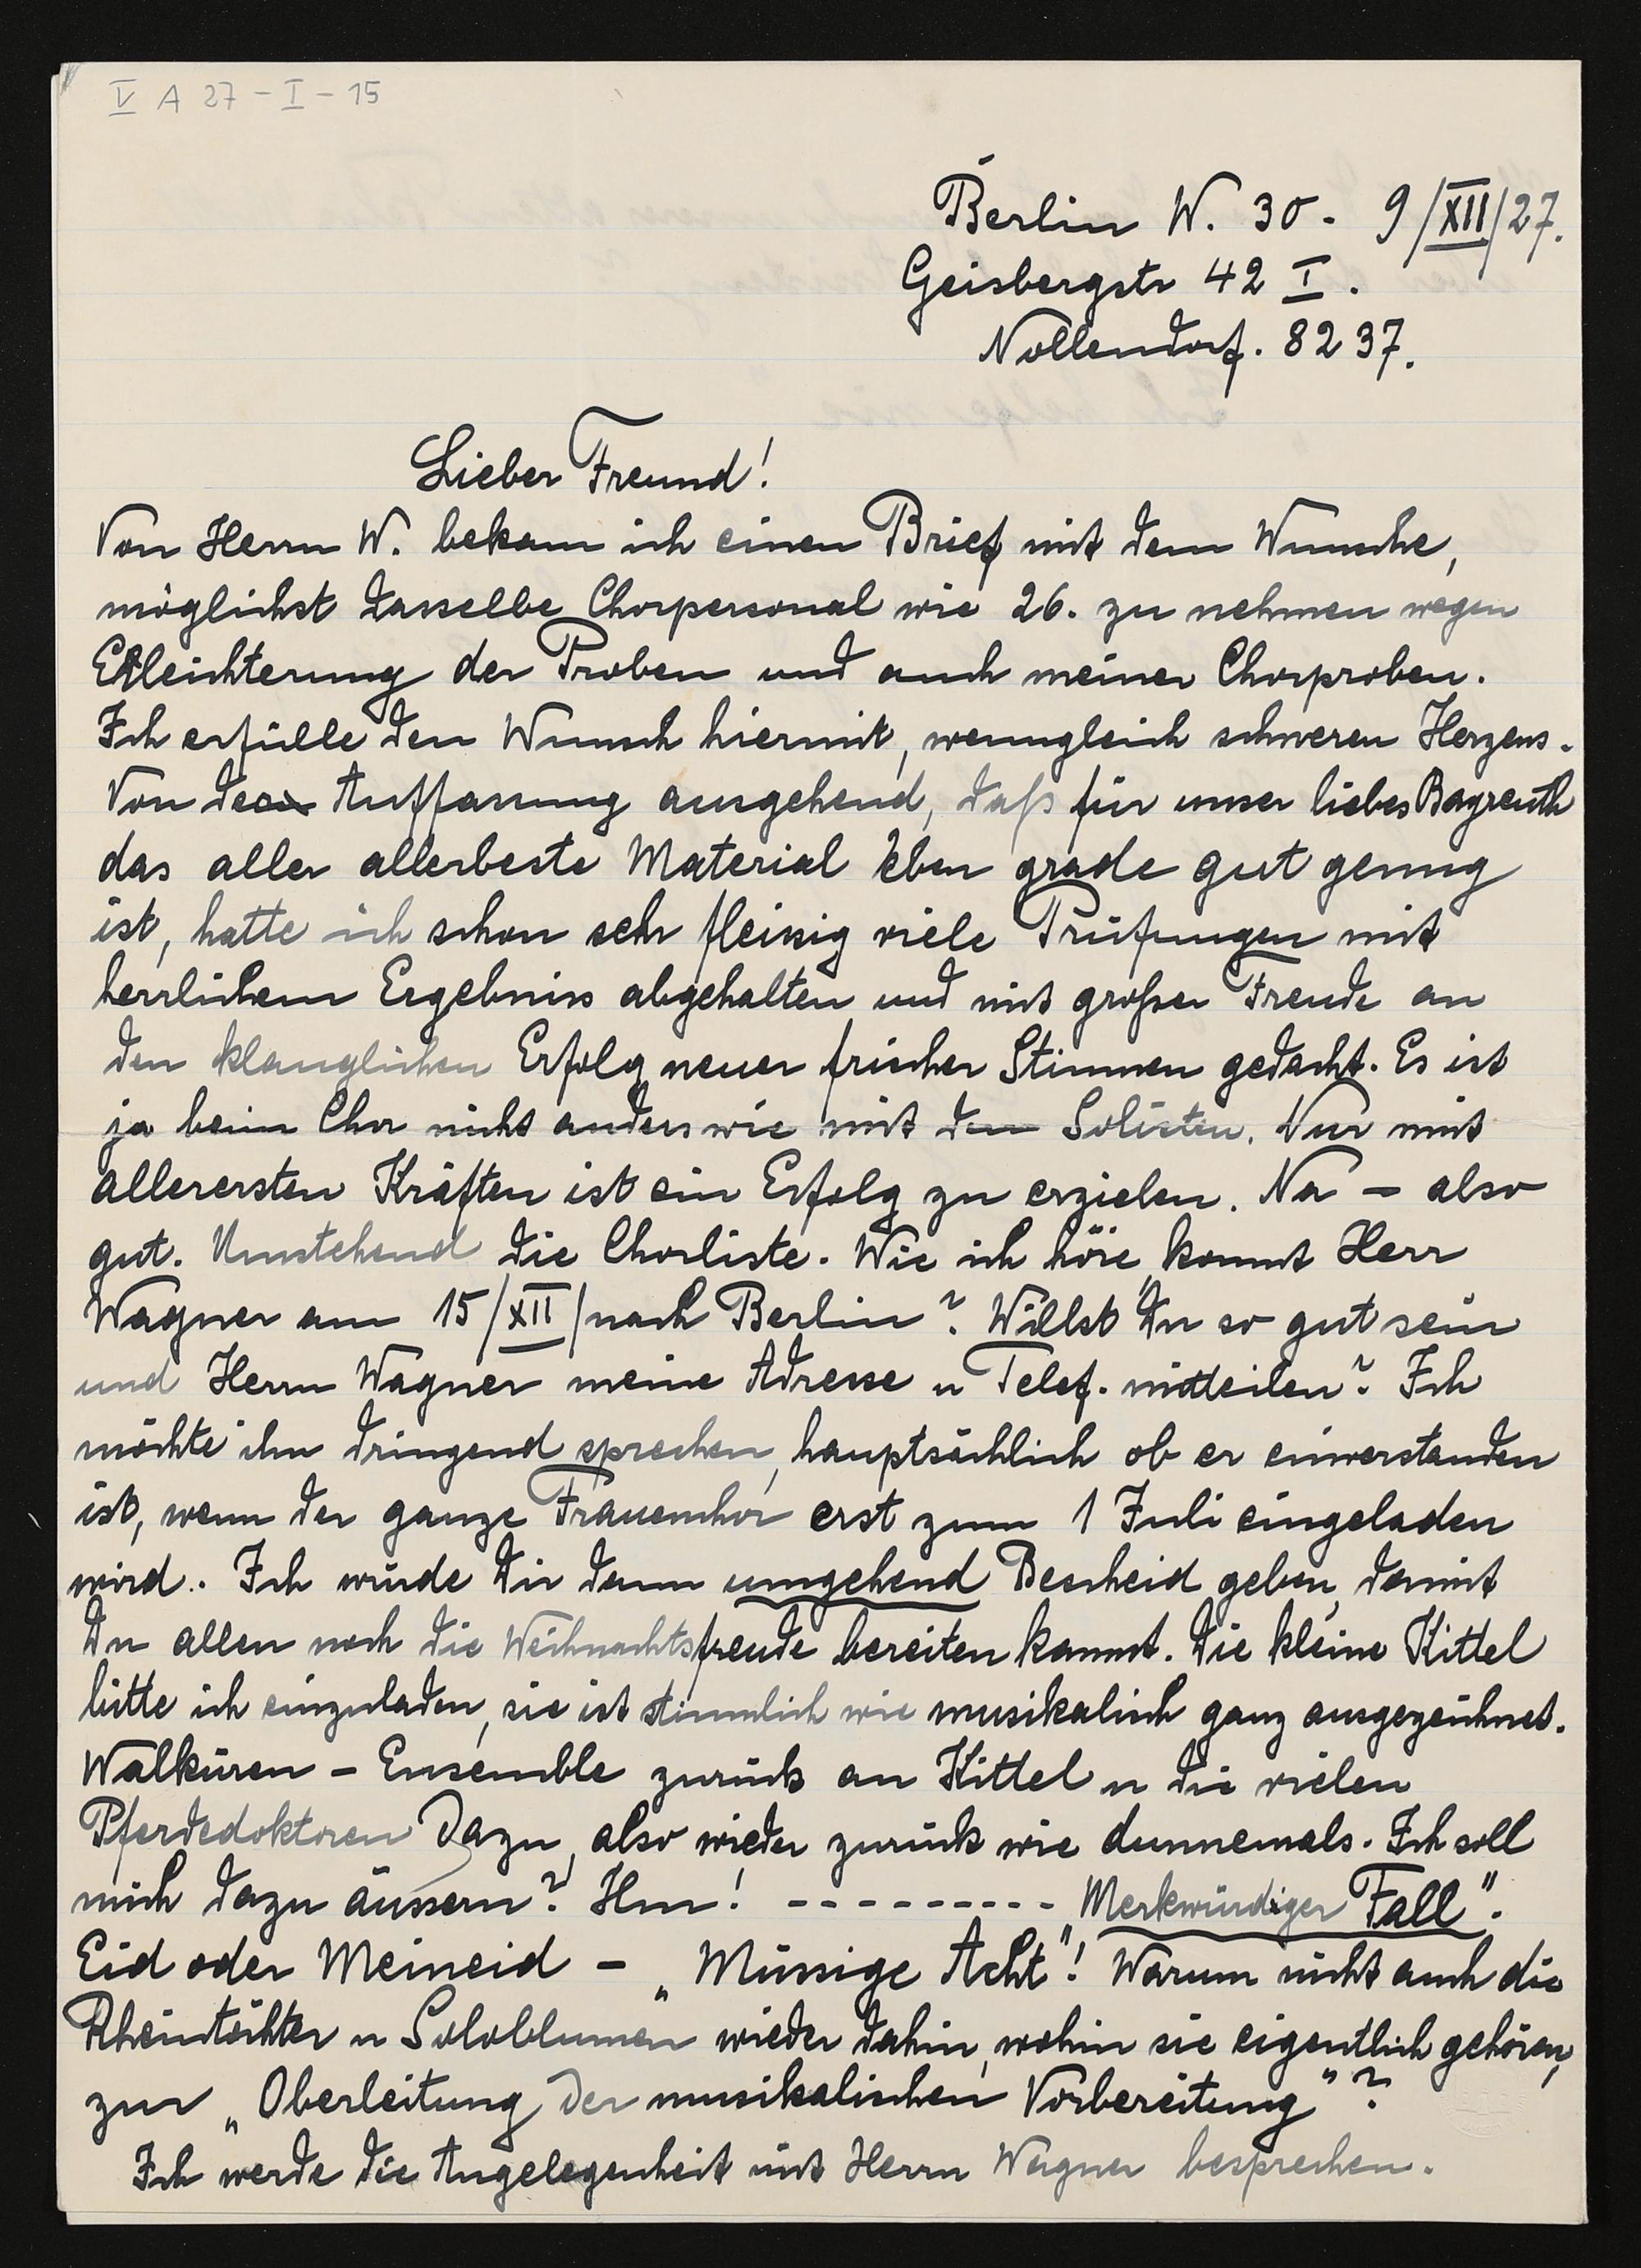 V A 27 - I - 15
Berlin W. 30 - 9/XII/27.
Geisbergstr 42 I.
Nollendorf. 8237.
Lieber Freund!
Von Herrn W. bekam ich einen Brief mit dem Wunsche,
möglichst dasselbe Chorpersonal wie 26. zu nehmen wegen
Erleichterung der Proben und auch meiner Chorproben.
Ich erfülle den Wunsch hiermit, wenngleich schweren Herzens.
Von der Auffassung ausgehend, daß für unser liebes Bayreuth
das aller allerbeste Material eben grade gut genug
ist, hatte ich schon sehr fleissig viele Prüfungen mit
herrlichem Ergebniss abgehalten und mit großer Freude an
den klanglichen Erfolg neuer frischer Stimmen gedacht. Es ist
ja beim Chor nicht anders wie mit den Solisten. Nur mit
allerersten Kräften ist ein Erfolg zu erzielen. Na - also
gut. Umstehend die Chorliste. Wie ich höre, kommt Herr
Wagner am 15/XII/ nach Berlin? Willst Du so gut sein
und Herrn Wagner meine Adresse u Telef. mitteilen? Ich
möchte ihn dringend sprechen, hauptsächlich ob er einverstanden
ist, wenn der ganze Frauenchor erst zum 1 Juli eingeladen
wird. Ich würde Dir dann umgehend Bescheid geben, damit
Du allen noch die Weihnachtsfreude bereiten kannst. Die kleine Kittel
bitte ich einzuladen, sie ist stimmlich wie musikalisch ganz ausgezeichnet.
Walküren - Ensemble zurück an Kittel u die vielen
Pferdedoktoren dazu, also wieder zurück wie dunnemals. Ich soll
mich dazu äussern? Hm! - - - - - - - - - "Merkwürdiger Fall".
Eid oder Meineid - „Müssige Acht"! Warum nicht auch die
Rheintöchter u Soloblumen wieder dahin, wohin sie eigentlich gehören,
zur „Oberleitung der musikalischen Vorbereitung"?
Ich werde die Angelegenheit mit Herrn Wagner besprechen.